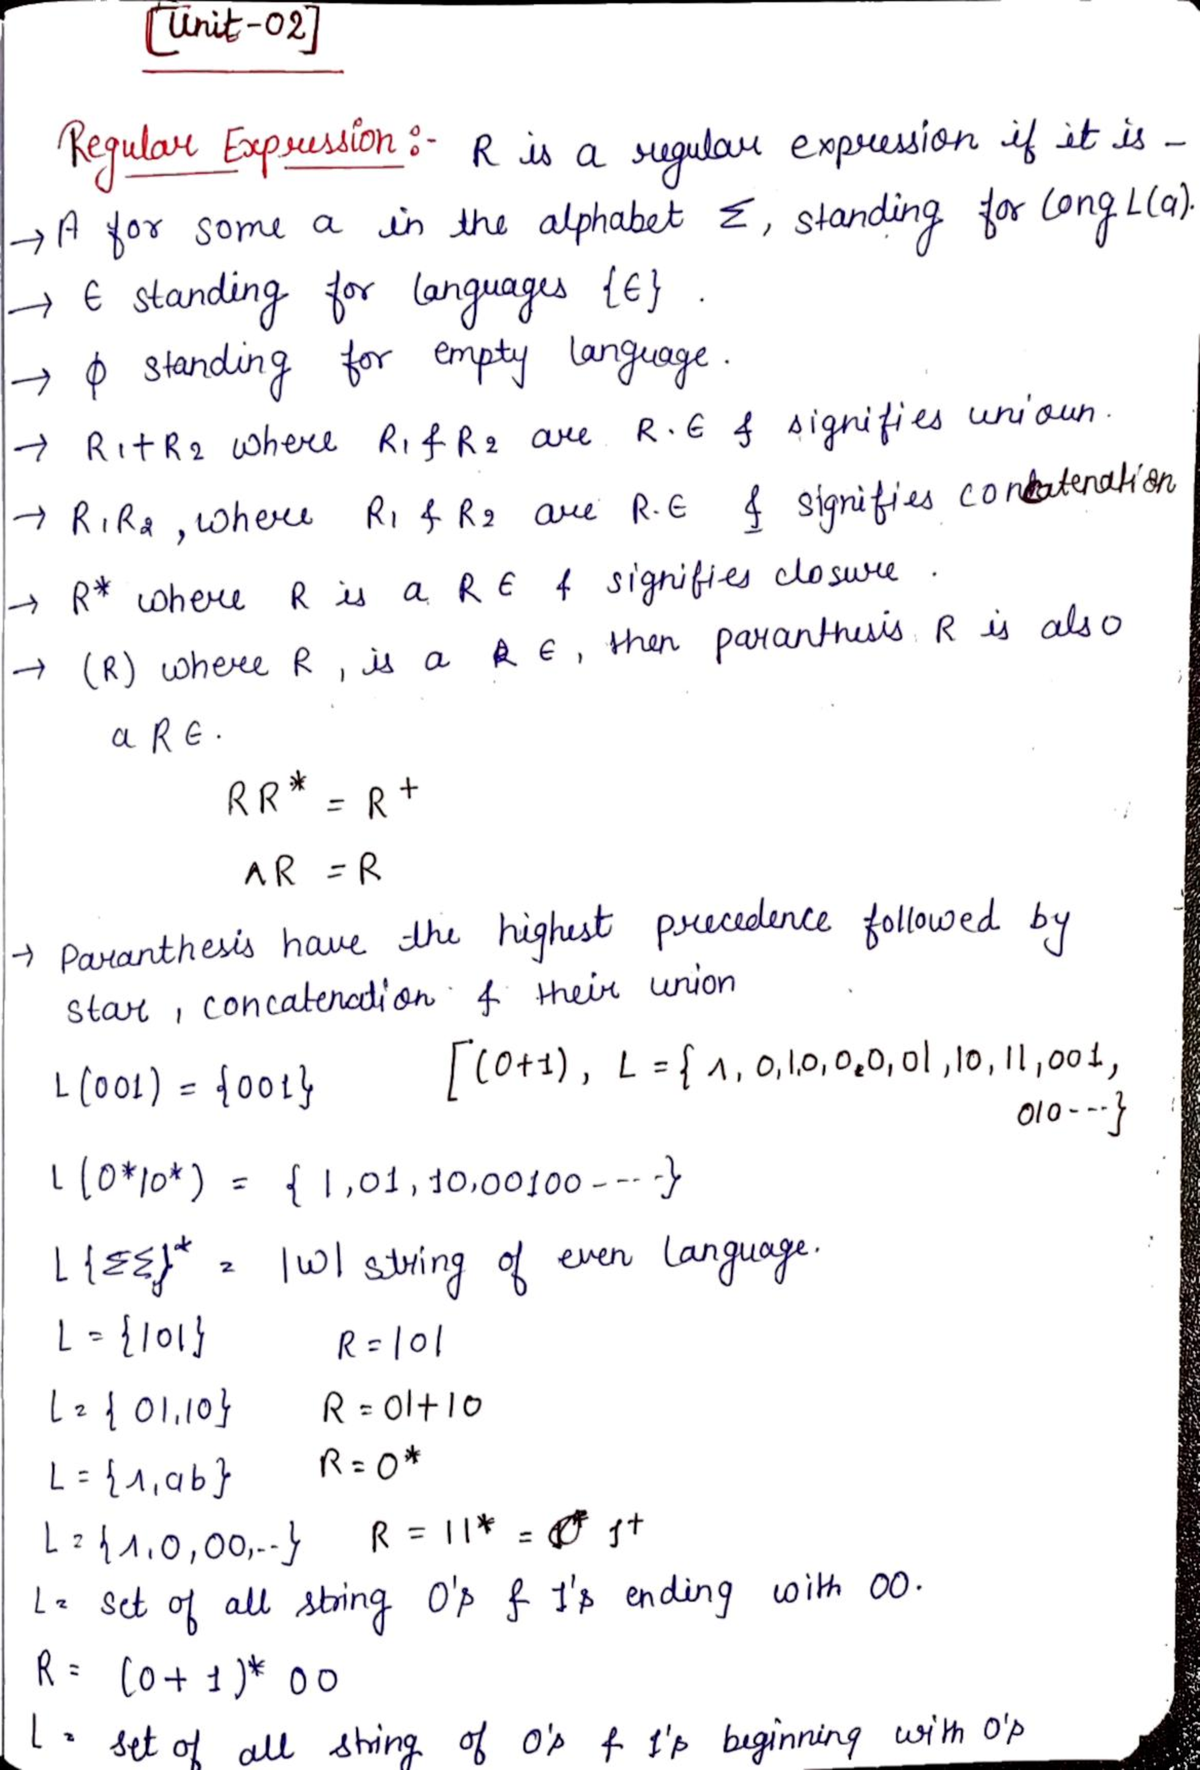 [Unit-02]
Regular Expression :- R is a regular expression if it is -
→ A for some a in the alphabet Σ, standing for long L(a).
→ ϵ standing for languages {ϵ} .
→ ϕ standing for empty language.
→ R1+R2 where R1 & R2 are R.E & signifies unioun.
→ R1R2, where R1 & R2 are R.E & signifies concatenation
→ R* where R is a R E & signifies closure .
→ (R) where R, is a R E, then paranthesis R is also
a R E.
RR* = R+
∧R = R
→ Paranthesis have the highest precedence followed by
star, concatenation & their union
L(001) = {001} [(0+1), L = {∧, 0,10,0,0,01,10,11,001,
010---}
L(0*10*) = {1,01,10,00100----}
L{ΣΣ}* = |w| string of even language.
L = {101} R = 101
L = {01,10} R = 01+10
L = {∧,ab} R = 0*
L = {∧,0,00,--} R = 11* = 1+
L = set of all string 0's & 1's ending with 00.
R = (0+1)* 00
L = set of all string of 0's & 1's beginning with 0's